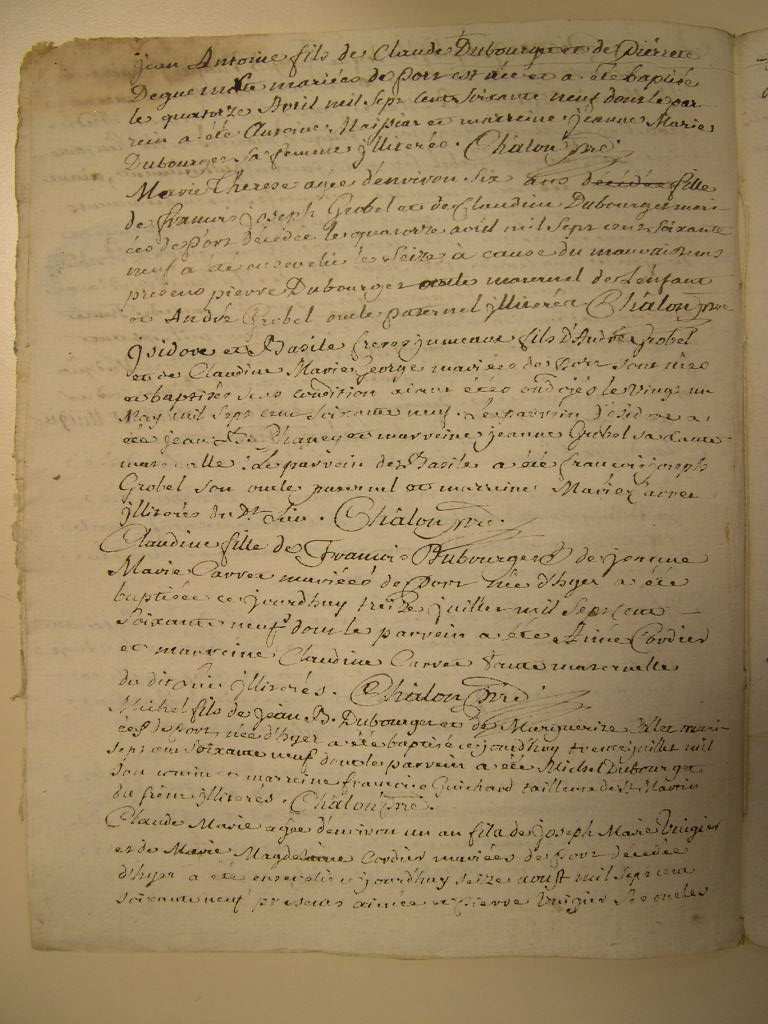 jean Antoine fils de Claude Dubourget et de Pierrete
mariées de Port est née et a été baptisé
le quatorze Avril mil sept cent soixante neuf dont le par
rein a été Antoine et marreine jeanne Marie
Dubourget sa femme jlliterés. Chalon ptre.
Marie Therese agée d'environ six ans décédée fille
de francois joseph Grobel et de Claudine Dubourget mari
ées de Port décédée le quatorze avril mil sept cent soixante
neuf a été ensevelie le seize à cause du mauvais tems
presens pierre Dubourget oncle maternel de L'enfant
et André Grobel oncle paternel jlliterés Chalon ptre
jsidore et Basile freres jumeaux fils d'André Grobel
et de Claudine Marie George mariées de Port sont nées
et baptisés sous condition aiant étés ondoiés le vingt un
May mil sept cent soixante neuf. Le parrein d'jsidore a
été jean et marreine jeanne Grobel sa tante
: Le parrein de Basile a été francois joseph
Grobel son oncle paternel et marreine Marie Carret
jlliterés du Dt lieu. Chalon ptre.
Claudine fille de Francois Dubourget & de jeanne
Marie Carret mariées de Port née d'hyer a été
baptisée ce jourdhuy treize juillet mil sept cent
soixante neuf dont le parrein a été Aimé Cordier
et marreine Claudine Carret tante maternelle
du dit lieu jlliterés. Chalon ptre.
Michel fils de jean B. Dubourget et de Marguerite mari
ées de Port née d'hyer a été baptisé ce jourdhuy trente juillet mil
sept cent soixante neuf dont le parrein a été Michel Dubourget
son cousin et marreine francoise Guichard tailleuse de
jlliterés. Chalon ptre.
Claude Marie agée d'environ un an fils de joseph Marie
et de Marie Magdelaine Cordier mariées de Port décédée
d'hyer a été ensevelie ce jourdhuy seize aoust mil sept cent
soixante neuf presens aimée et Pierre ses oncles